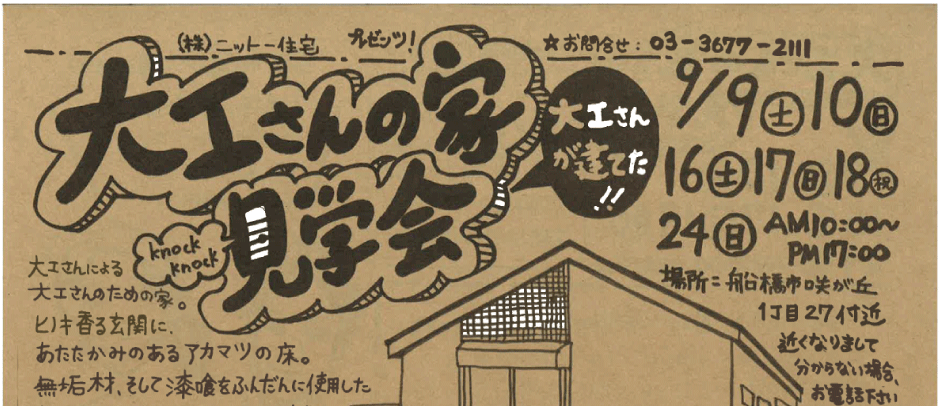 (株)ニットー住宅 プレゼンツ! ☆お問合せ:03-3677-2111
大工さんの家
見学会
大工さん
が建てた
!!
9/9(土)10(日)
16(土)17(日)18(祝)
24(日) AM10:00~
PM17:00
場所:船橋市咲が丘
1丁目27付近
近くなりまして
分からない場合、
お電話下さい
knock
knock
大工さんによる
大工さんのための家。
ヒノキ香る玄関に、
あたたかみのあるアカマツの床。
無垢材、そして漆喰をふんだんに使用した